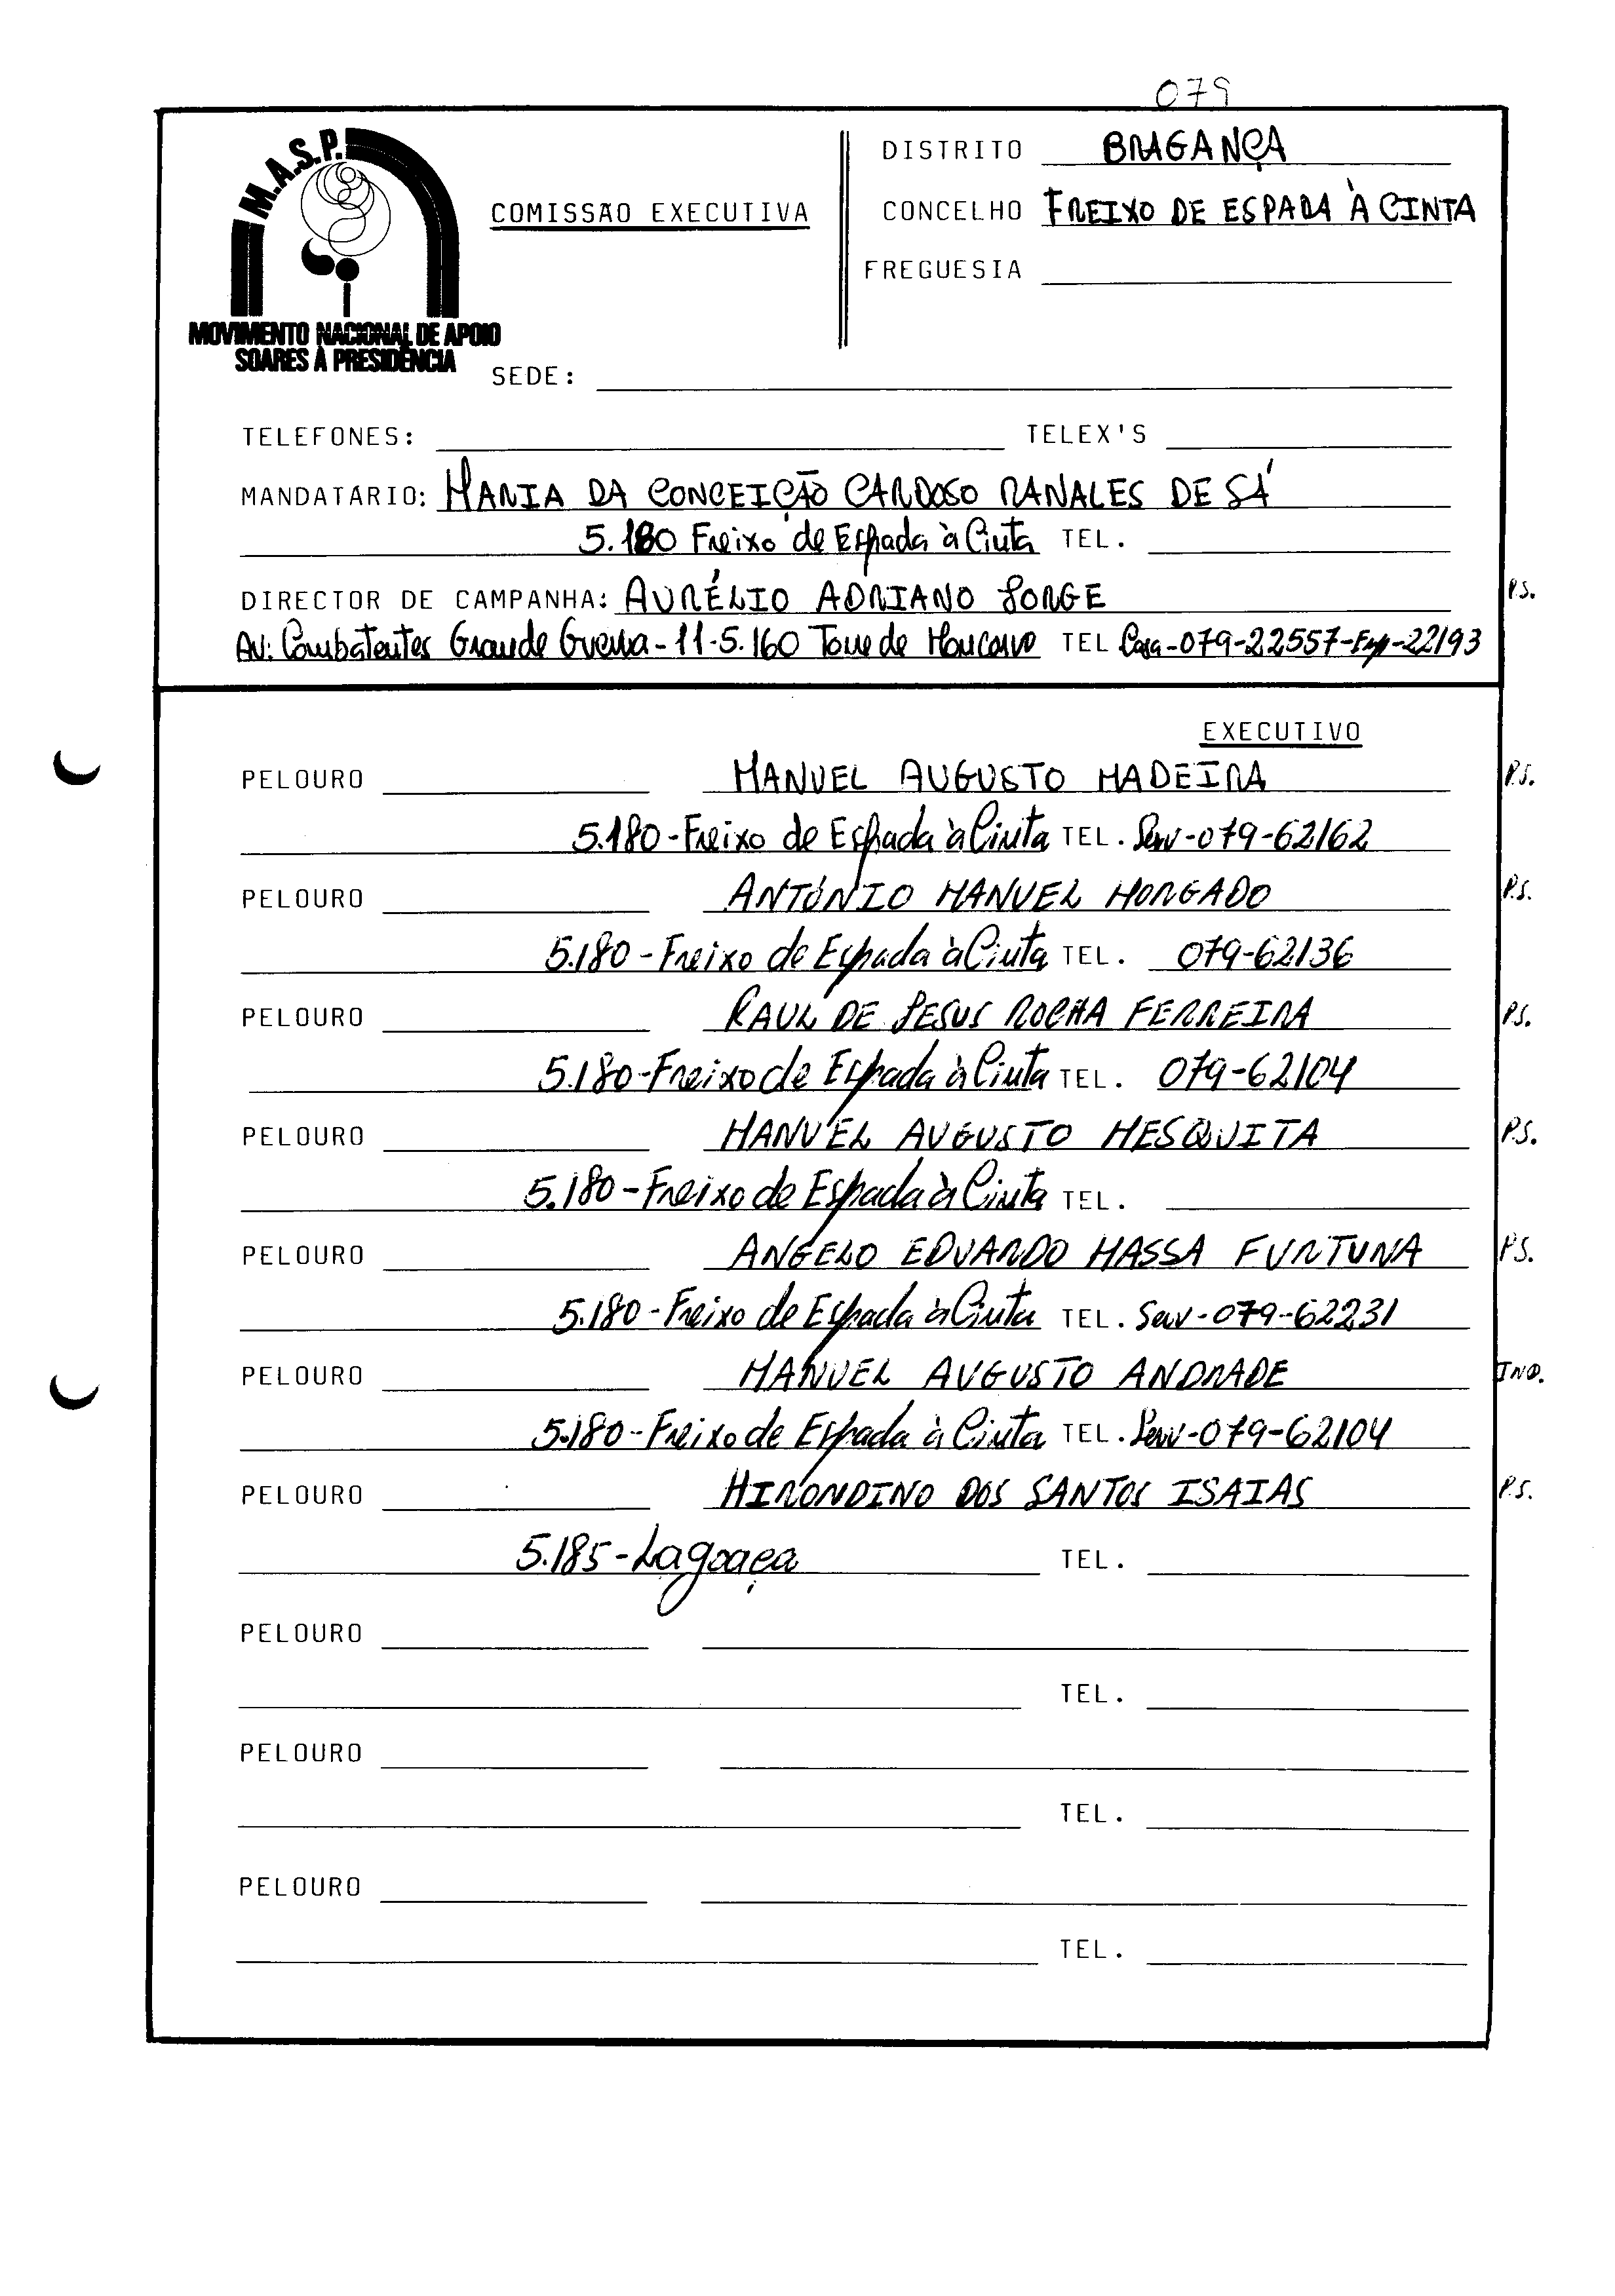 079
M.A.S.P.
MOVIMENTO NACIONAL DE APOIO
SOARES À PRESIDÊNCIA
COMISSÃO EXECUTIVA
DISTRITO BRAGANÇA
CONCELHO FREIXO DE ESPADA À CINTA
FREGUESIA
SEDE:
TELEFONES: TELEX'S
MANDATÁRIO: MARIA DA CONCEIÇÃO CARDOSO RANALES DE SÁ
5.180 Freixo de Espada à Cinta TEL.
DIRECTOR DE CAMPANHA: AURÉLIO ADRIANO JORGE P.S.
Av: Combatentes Grande Guerra - 11 - 5.160 Torre de Moncorvo TEL Casa-079-22557-Emp-22193
EXECUTIVO
PELOURO MANUEL AUGUSTO MADEIRA P.S.
5.180-Freixo de Espada à Cinta TEL. Serv-079-62162
PELOURO ANTÓNIO MANUEL MORGADO P.S.
5.180-Freixo de Espada à Cinta TEL. 079-62136
PELOURO RAUL DE JESUS ROCHA FERREIRA P.S.
5.180-Freixo de Espada à Cinta TEL. 079-62104
PELOURO MANUEL AUGUSTO MESQUITA P.S.
5.180-Freixo de Espada à Cinta TEL.
PELOURO ANGELO EDUARDO MASSA FURTUNA P.S.
5.180-Freixo de Espada à Cinta TEL. Serv-079-62231
PELOURO MANUEL AUGUSTO ANDRADE IND.
5.180-Freixo de Espada à Cinta TEL. Serv-079-62104
PELOURO HIRONDINO DOS SANTOS ISAIAS P.S.
5.185-Lagoaça TEL.
PELOURO
TEL.
PELOURO
TEL.
PELOURO
TEL.